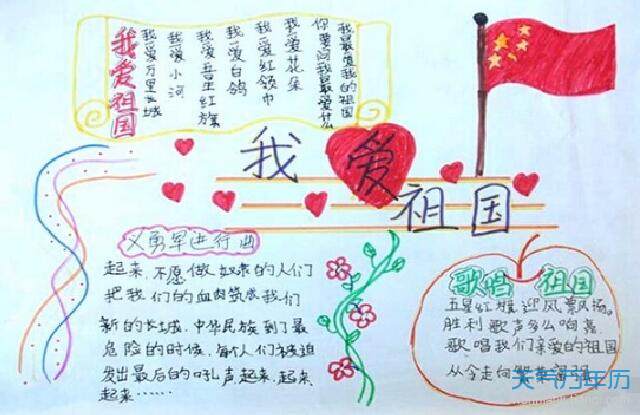 我爱祖国
我最爱我的祖国
你要问我最爱什么
我爱花朵
我爱红领巾
我爱白鸽
我爱五星红旗
我爱小河
我爱万里长城
我爱祖国
义勇军进行曲
起来,不愿做奴隶的人们
把我们的血肉筑成我们
新的长城,中华民族到了最
危险的时候,每个人们被迫
发出最后的吼声,起来,起来,
起来……
歌唱 祖国
五星红旗迎风飘扬。
胜利歌声多么响亮
歌唱我们亲爱的祖国
从今走向
天气万年历